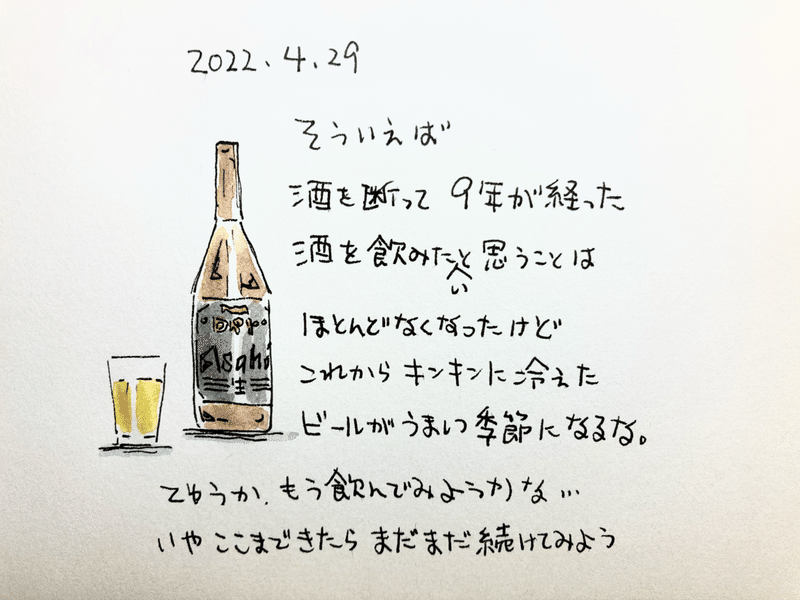 2022.4.29
そういえば
酒を断って 9年が経った
酒を飲みたいと思うことは
ほとんどなくなったけど
これから キンキンに冷えた
ビールがうまい季節になるな。
てゆうか、もう飲んでみようかな…
いや ここまできたら まだまだ続けてみよう
Asahi
生